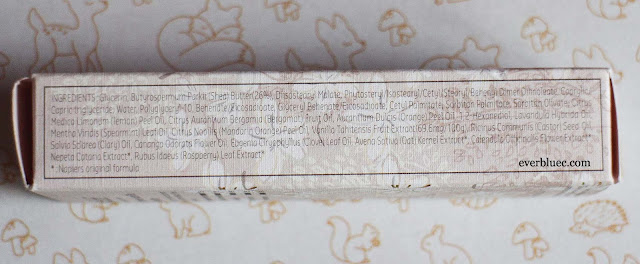 INGREDIENTS : Glycerin, Butyrospermum Parkii (Shea) Butter(26%), Diisostearyl Malate, Phytosteryl/Isostearyl/Cetyl/Stearyl/Behenyl Dimer Dilinoleate, Caprylic/
Capric triglyceride, Water, Polyglyceryl-10, Behenate/Eicosadioate, Glyceryl Behenate/Eicosadioate, Cetyl Palmitate, Sorbitan Palmitate, Sorbitan Olivate, Citrus
Medica Limonum (lemon) Peel Oil, Citrus Aurantium Bergamia (Bergamot) Fruit Oil, Aurantium Dulcis (Orange) Peel Oil, 1,2-Hexanediol, Lavandula Hybrida Oil
Mentha Viridis (Spearmint) Leaf Oil, Citrus Nobilis (Mandarin Orange) Peel Oil, Vanilla Tahitensis Fruit Extract Ricinus Communis (Castor) Seed Oil,
Salvia Sclarea (Clary) Oil, Cananga Odorata Flower Oil, Eugenia Caryophyllus (Clove) Leaf Oil, Avena Sativa (Oat) Kernel Extract*, Calendula Officinalis Flower Extract*
Nepeta Cataria Extract*, Rubus Idaeus (Raspberry) Leaf Extract*
* : Napiers original formula
everbluec.com